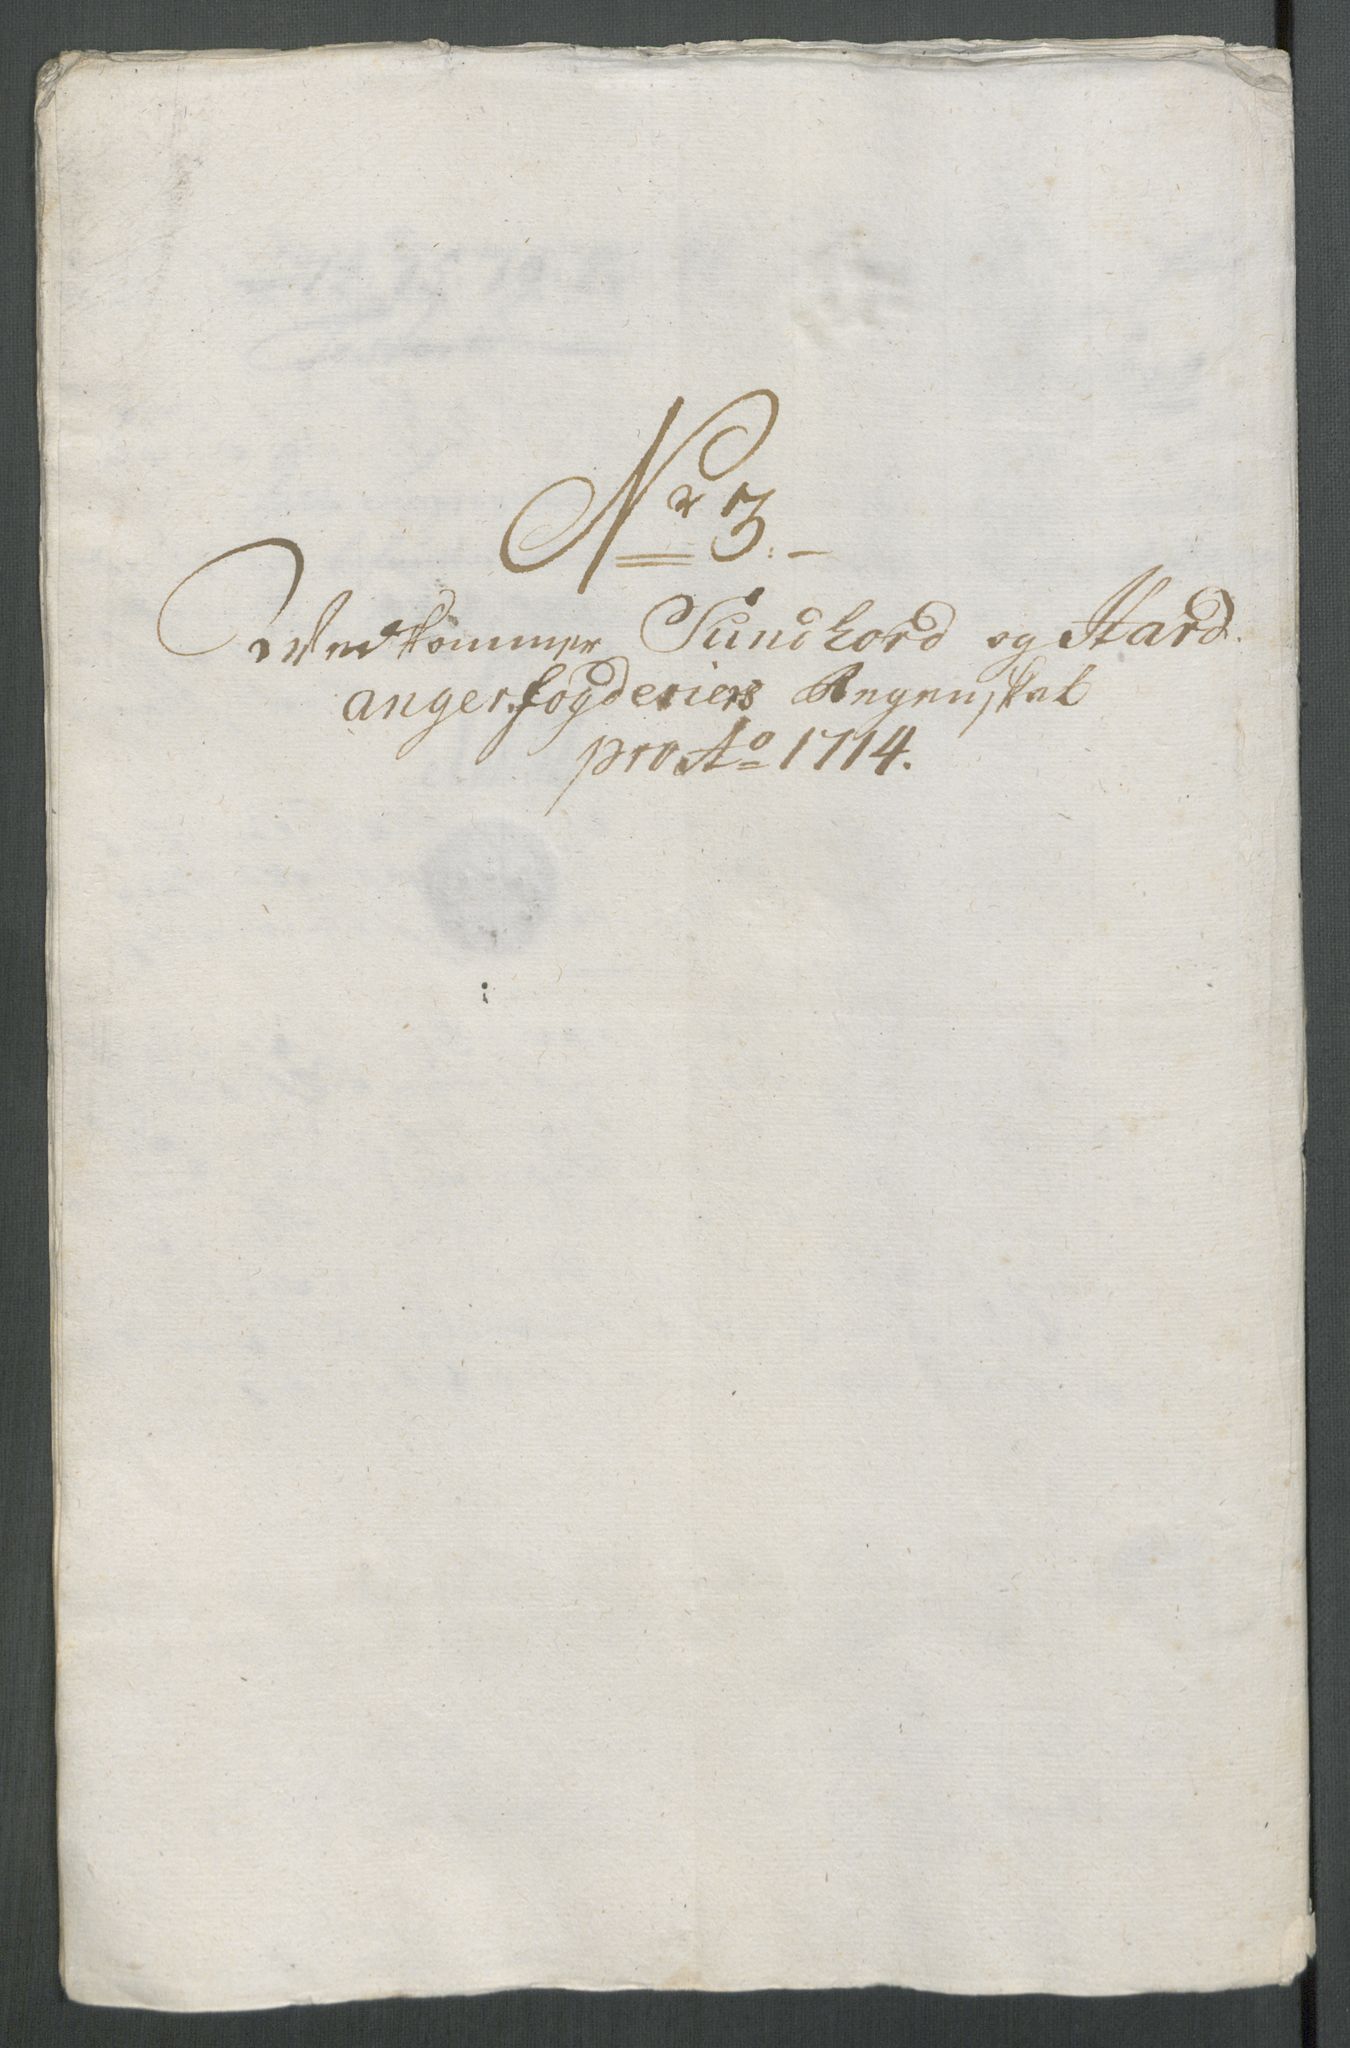 Nr 3.
Wedkommer Sundhord og Hard-
anger fogderiers Regenskab
pro Ao 1714.